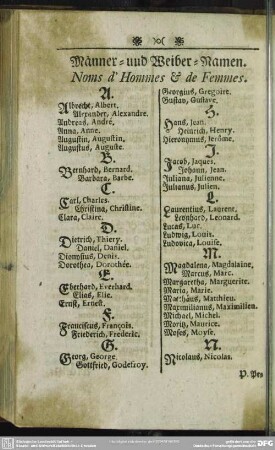 Männer- und Weiber-Namen.
Noms d'Hommes & de Femmes.
A.
Albrecht, Albert.
Alexander, Alexandre.
Andreas, André.
Anna, Anne.
Augustin, Augustin.
Augustus, Auguste.
B.
Bernhard, Bernard.
Barbara, Barbe.
C.
Carl, Charles.
Christina, Christine.
Clara, Claire.
D.
Dietrich, Thiery.
Daniel, Daniel.
Dionysius, Denis.
Dorothea, Dorothée.
E.
Eberhard, Everhard.
Elias, Elie.
Ernst, Ernest.
F.
Franciscus, François.
Friederich, Frederic.
G.
Georg, George.
Gottfried, Godefroy.
Georgius, Gregoire.
Gustav, Gustave.
H.
Hans, Jean.
Heinrich, Henry.
Hieronymus, Jerôme.
J.
Jacob, Jaques.
Johann, Jean.
Juliana, Julienne.
Julianus, Julien.
L.
Laurentius, Laurent.
Leonhard, Leonard.
Lucas, Luc.
Ludwig, Louis.
Ludovica, Louise.
M.
Magdalena, Magdalaine.
Marcus, Marc.
Margaretha, Marguerite.
Maria, Marie.
Matthäus, Matthieu.
Maximilianus, Maximilien.
Michael, Michel.
Moritz, Maurice.
Moses, Moyse.
N.
Nicolaus, Nicolas.
P. Pes